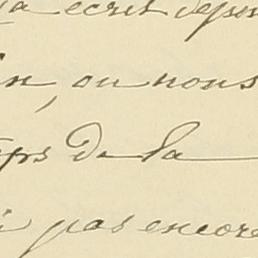 a écrit depu
in, ou nous
mps de la
i pas encore